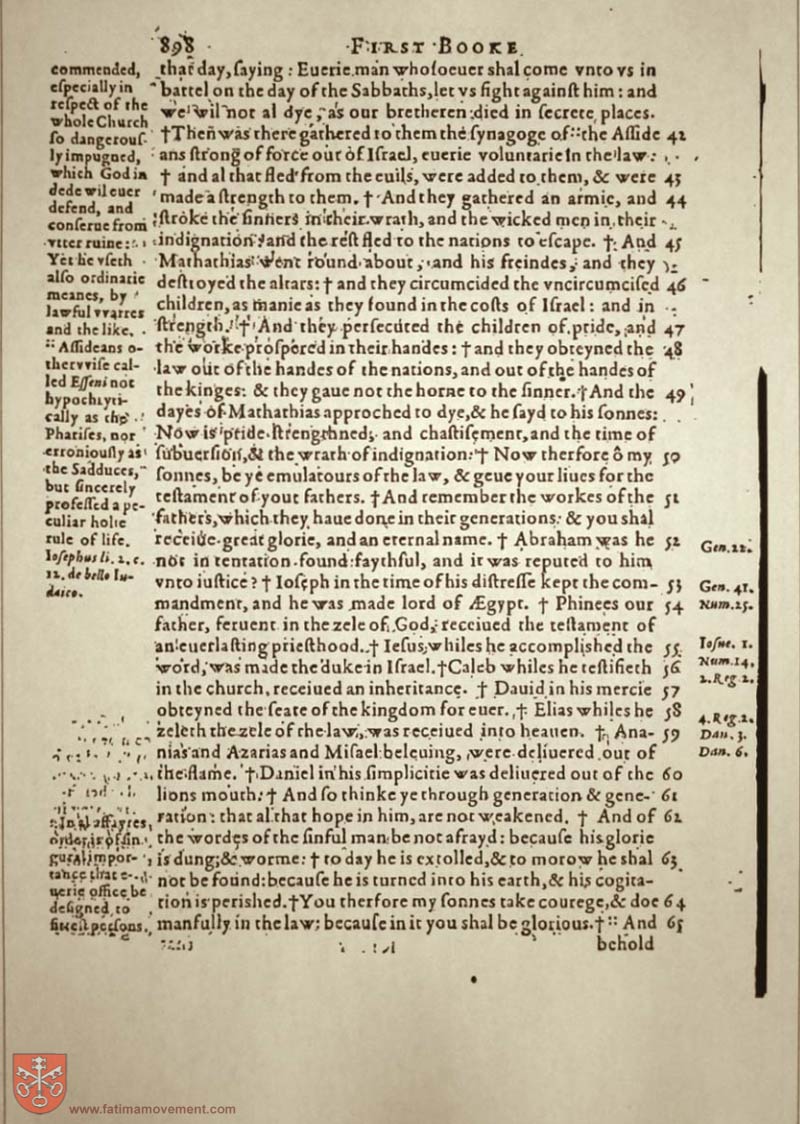 898
FIRST BOOKE
commended,
eſpecially in
reſpect of the
whole Church
ſo dangerouſ-
ly impugned,
which God in
dede wil euer
defend, and
conſerue from
vtter ruine:
Yet he vſeth
alſo ordinarie
meanes, by
lawful vvarres
and the like.
:: Aſſideans o-
thervviſe cal-
led Eſſeni not
hypocriti-
cally as the
Phariſes, nor
erroniouſly as
the Sadduces,
but ſincerely
profeſſed a pe-
culiar holie
rule of life.
Ioſephus li. 2. c.
12. de bello Iu-
daico.
:: In al affayres,
order is of ſin-
gural impor-
tance that e-
uerie office be
deſigned to
fitteſt perſons.
that day, ſaying: Euerie man whoſoeuer shal come vnto vs in
battel on the day of the Sabbaths, let vs fight againſt him: and
we wil not al dye, as our bretheren died in ſecrete places.
†Then was there gathered to them the ſynagoge of :: the Aſſide 42
ans ſtrong of force out of Iſrael, euerie voluntarie in the law:
† and al that fled from the euils, were added to them, & were 43
made a ſtrength to them. † And they gathered an armie, and 44
ſtroke the ſinners in their wrath, and the wicked men in their
indignation: and the reſt fled to the nations to eſcape. † And 45
Mathathias went round about, and his freindes, and they
deſtroyed the altars: † and they circumcided the vncircumciſed 46
children, as manie as they found in the coſts of Iſrael: and in
ſtrength. † And they perſecuted the children of pride, and 47
the worke proſpered in their handes: † and they obteyned the 48
law out of the handes of the nations, and out of the handes of
the kinges: & they gaue not the horne to the ſinner. † And the 49
dayes of Mathathias approched to dye, & he ſayd to his ſonnes:
Now is pride ſtrengthned, and chaſtiſement, and the time of
ſubuerſion, & the wrath of indignation: † Now therfore ô my 50
ſonnes, be ye emulatours of the law, & geue your liues for the
teſtament of your fathers. † And remember the workes of the 51
fathers, which they haue done in their generations: & you shal
receiue great glorie, and an eternal name. † Abraham was he 52
not in tentation found faythful, and it was reputed to him
vnto iuſtice? † Ioſeph in the time of his diſtreſſe kept the com- 53
mandment, and he was made lord of Ægypt. † Phinees our 54
father, feruent in the zele of God, receiued the teſtament of
an euerlaſting prieſthood. † Ieſus whiles he accomplished the 55
word, was made the duke in Iſrael. † Caleb whiles he teſtifieth 56
in the church, receiued an inheritance. † Dauid in his mercie 57
obteyned the ſeate of the kingdom for euer. † Elias whiles he 58
zeleth the zele of the law, was receiued into heauen. † Ana- 59
nias and Azarias and Miſael beleuing, were deliuered out of
the flame. † Daniel in his ſimplicitie was deliuered out of the 60
lions mouth. † And ſo thinke ye through generation & gene- 61
ration: that al that hope in him, are not weakened. † And of 62
the wordes of the ſinful man be not afrayd: becauſe his glorie
is dung, & worme: † to day he is extolled, & to morow he shal 63
not be found: becauſe he is turned into his earth, & his cogita-
tion is perished. † You therfore my ſonnes take courege, & doe 64
manfully in the law: becauſe in it you shal be glorious. † :: And 65
behold
Gen. 22.
Gen. 41.
Num. 25.
Ioſue. 1.
Num. 14.
2. Reg. 2.
4. Reg. 2.
Dan. 3.
Dan. 6.
www.fatimamovement.com